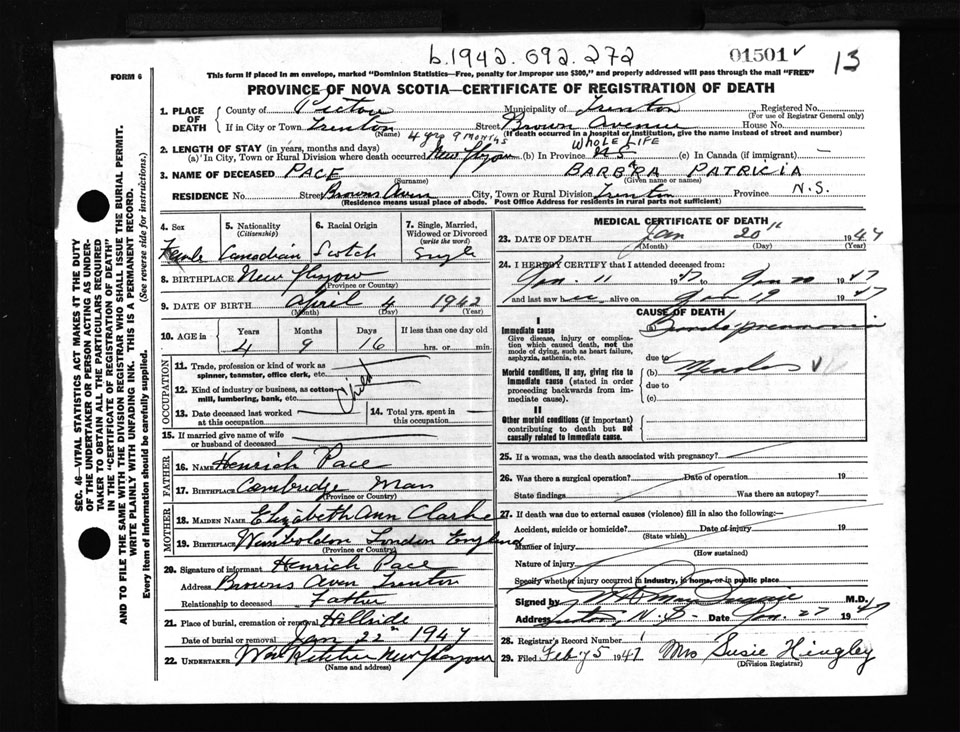 b.1942.692.272
01501 v
13
FORM 6
This form if placed in an envelope, marked "Dominion Statistics—Free, penalty for improper use $300," and properly addressed will pass through the mail "FREE"
PROVINCE OF NOVA SCOTIA—CERTIFICATE OF REGISTRATION OF DEATH
1. PLACE OF DEATH
County of Pictou Municipality of Trenton Registered No.
(For use of Registrar General only)
If in City or Town Trenton Street Brown Avenue House No.
(Name) (If death occurred in a hospital or institution, give the name instead of street and number)
4 yrs 9 months WHOLE LIFE
2. LENGTH OF STAY (in years, months and days)
(a) In City, Town or Rural Division where death occurred New Glasgow (b) In Province NS (c) In Canada (if immigrant) —
3. NAME OF DECEASED PACE BARBARA PATRICIA
(Surname) (Given name or names)
RESIDENCE No. Street Browns Aven City, Town or Rural Division Trenton Province N.S.
(Residence means usual place of abode. Post Office Address for residents in rural parts not sufficient)
4. Sex 5. Nationality (Citizenship) 6. Racial Origin 7. Single, Married, Widowed or Divorced (write the word)
Female Canadian Scotch Single
8. BIRTHPLACE New Glasgow
(Province or Country)
9. DATE OF BIRTH April 4 1942
(Month) (Day) (Year)
10. AGE in Years Months Days If less than one day old
4 9 16 hrs. or min.
OCCUPATION
11. Trade, profession or kind of work as spinner, teamster, office clerk, etc.
12. Kind of industry or business, as cotton-mill, lumbering, bank, etc.
Child
13. Date deceased last worked at this occupation
14. Total yrs. spent in this occupation
15. If married give name of wife or husband of deceased
FATHER
16. NAME Henrich Pace
17. BIRTHPLACE Cambridge Mass
(Province or Country)
MOTHER
18. MAIDEN NAME Elizabeth Ann Clarke
19. BIRTHPLACE Wimboldon London England
(Province or Country)
20. Signature of informant Henrich Pace
Address Browns Aven Trenton
Relationship to deceased Father
21. Place of burial, cremation or removal Hillside
Date of burial or removal Jan 22 1947
22. UNDERTAKER New Glasgow
(Name and address)
MEDICAL CERTIFICATE OF DEATH
23. DATE OF DEATH Jan 20 1947
(Month) (Day) (Year)
24. I HEREBY CERTIFY that I attended deceased from:
Jan. 11 1947 Jan 20 1947
and last saw alive on Jan 19 1947
CAUSE OF DEATH
I
Immediate cause
Give disease, injury or complication which caused death, not the mode of dying, such as heart failure, asphyxia, asthenia, etc.
(a) Broncho pneumonia
due to
Morbid conditions, if any, giving rise to immediate cause (stated in order proceeding backwards from immediate cause).
(b) Measles
due to
(c)
II
Other morbid conditions (if important) contributing to death but not causally related to immediate cause.
25. If a woman, was the death associated with pregnancy?
26. Was there a surgical operation? Date of operation 19
State findings Was there an autopsy?
27. If death was due to external causes (violence) fill in also the following:—
Accident, suicide or homicide? Date of injury 19
(State which)
Manner of injury
(How sustained)
Nature of injury
Specify whether injury occurred in industry, in home, or in public place
Signed by M.D.
Address Trenton, N.S. Date Jan. 27 1947
28. Registrar's Record Number 1
29. Filed Feb 5 1947 Mrs Susie Hingley
(Division Registrar)
SEC. 46—VITAL STATISTICS ACT MAKES IT THE DUTY
OF THE UNDERTAKER OR PERSON ACTING AS UNDER-
TAKER TO OBTAIN ALL THE PARTICULARS REQUIRED
IN THE "CERTIFICATE OF REGISTRATION OF DEATH"
AND TO FILE THE SAME WITH THE DIVISION REGISTRAR WHO SHALL ISSUE THE BURIAL PERMIT.
WRITE PLAINLY WITH UNFADING INK. THIS IS A PERMANENT RECORD.
Every item of information should be carefully supplied. (See reverse side for instructions.)